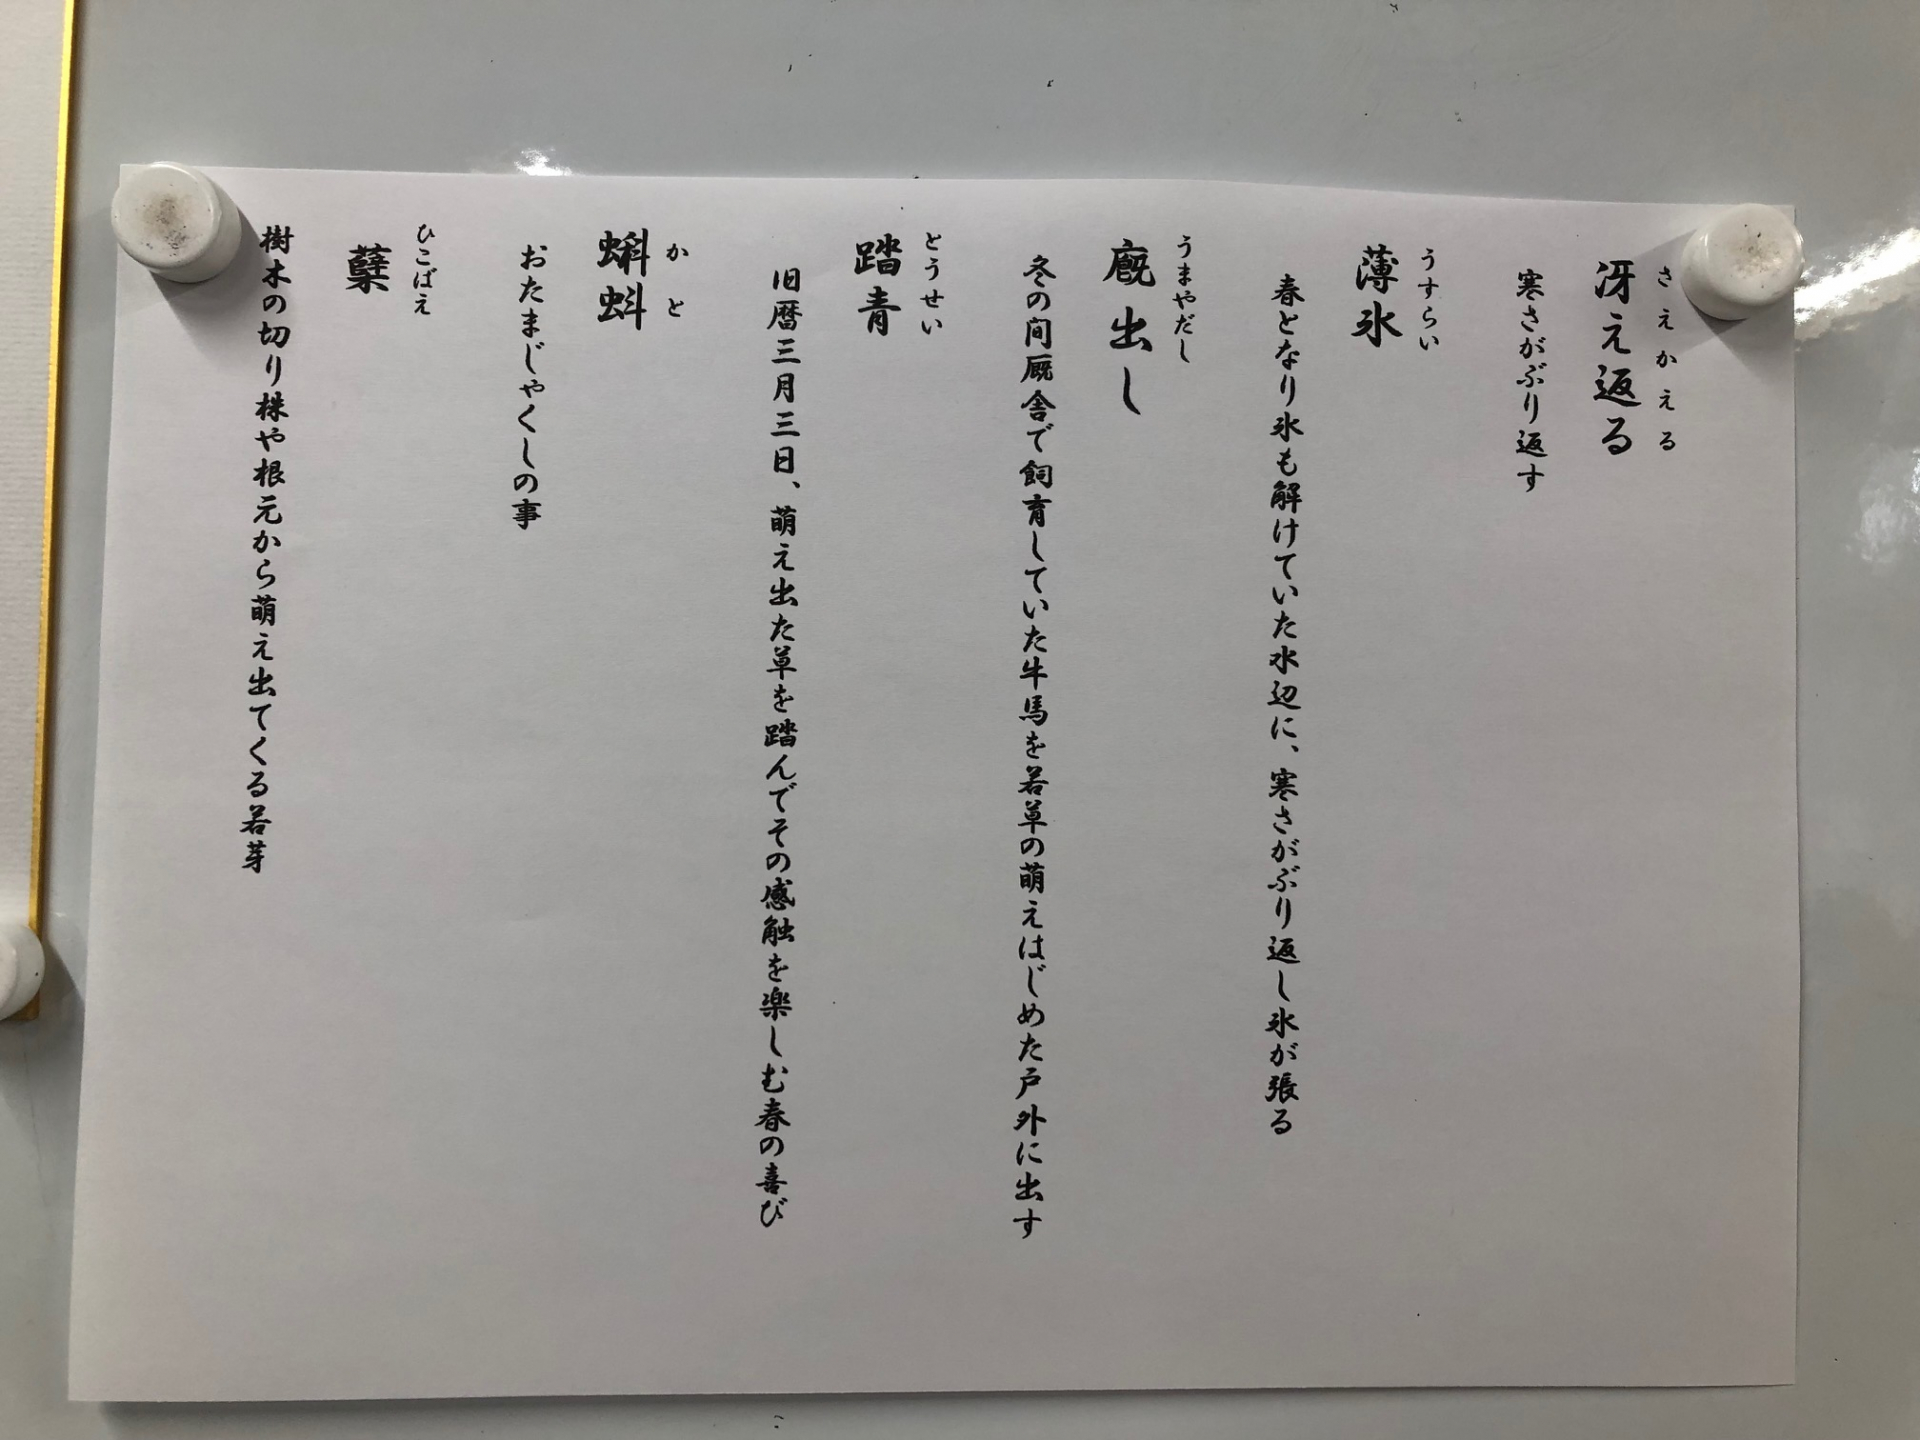 さえかえる
冴え返る
寒さがぶり返す
うすらい
薄氷
春となり氷も解けていた水辺に、寒さがぶり返し氷が張る
うまやだし
廐出し
冬の間厩舎で飼育していた牛馬を若草の萌えはじめた戸外に出す
とうせい
踏青
旧暦三月三日、萌え出た草を踏んでその感触を楽しむ春の喜び
かと
蝌蚪
おたまじゃくしの事
ひこばえ
蘖
樹木の切り株や根元から萌え出てくる若芽